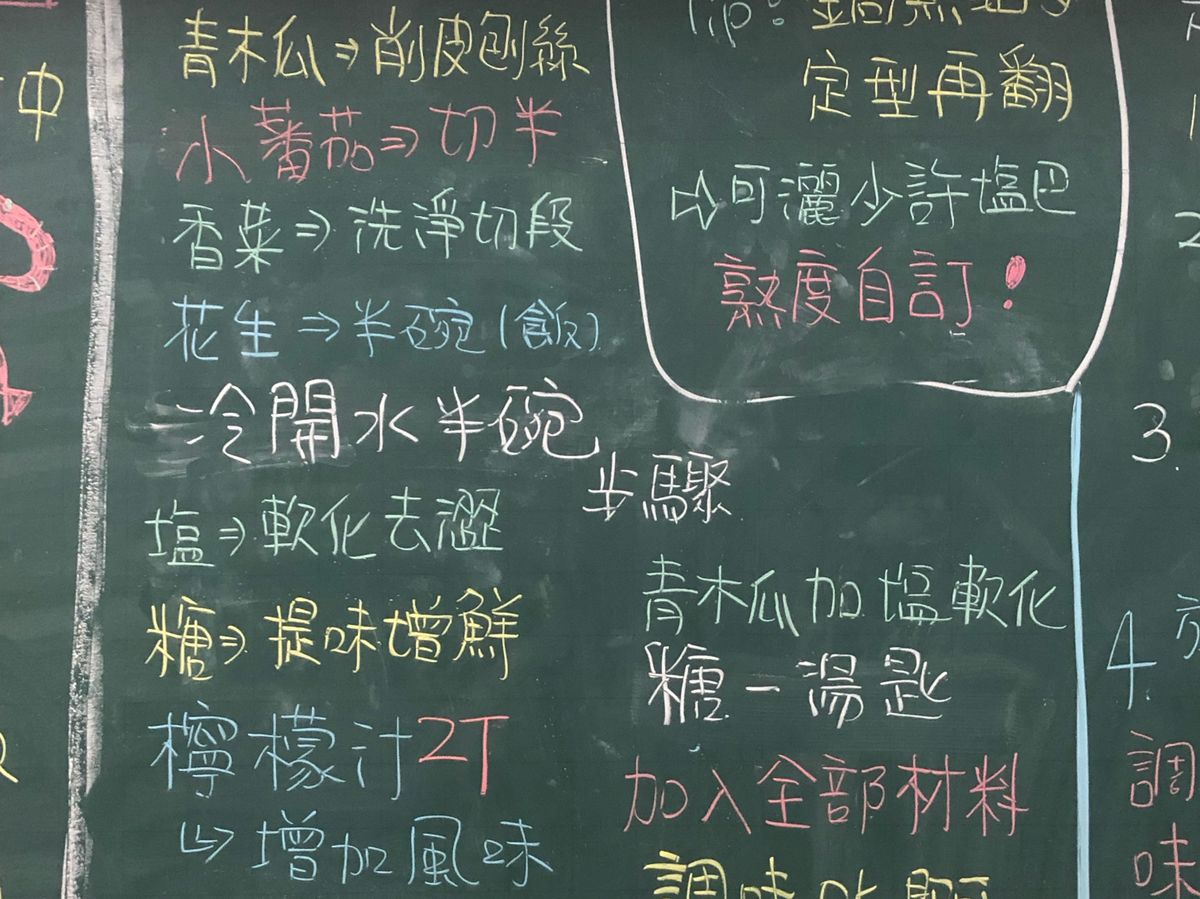 中
青木瓜⇒削皮刨絲
小蕃茄⇒切半
香菜⇒洗淨切段
花生⇒半碗(飯)
冷開水半碗
塩⇒軟化去澀
糖⇒提味增鮮
檸檬汁2T
↳增加風味
Tip:
定型再翻
⇨可灑少許塩巴
熟度自訂!
步驟
青木瓜加塩軟化
糖一湯匙
加入全部材料
調味
2
3.
4.
調
味